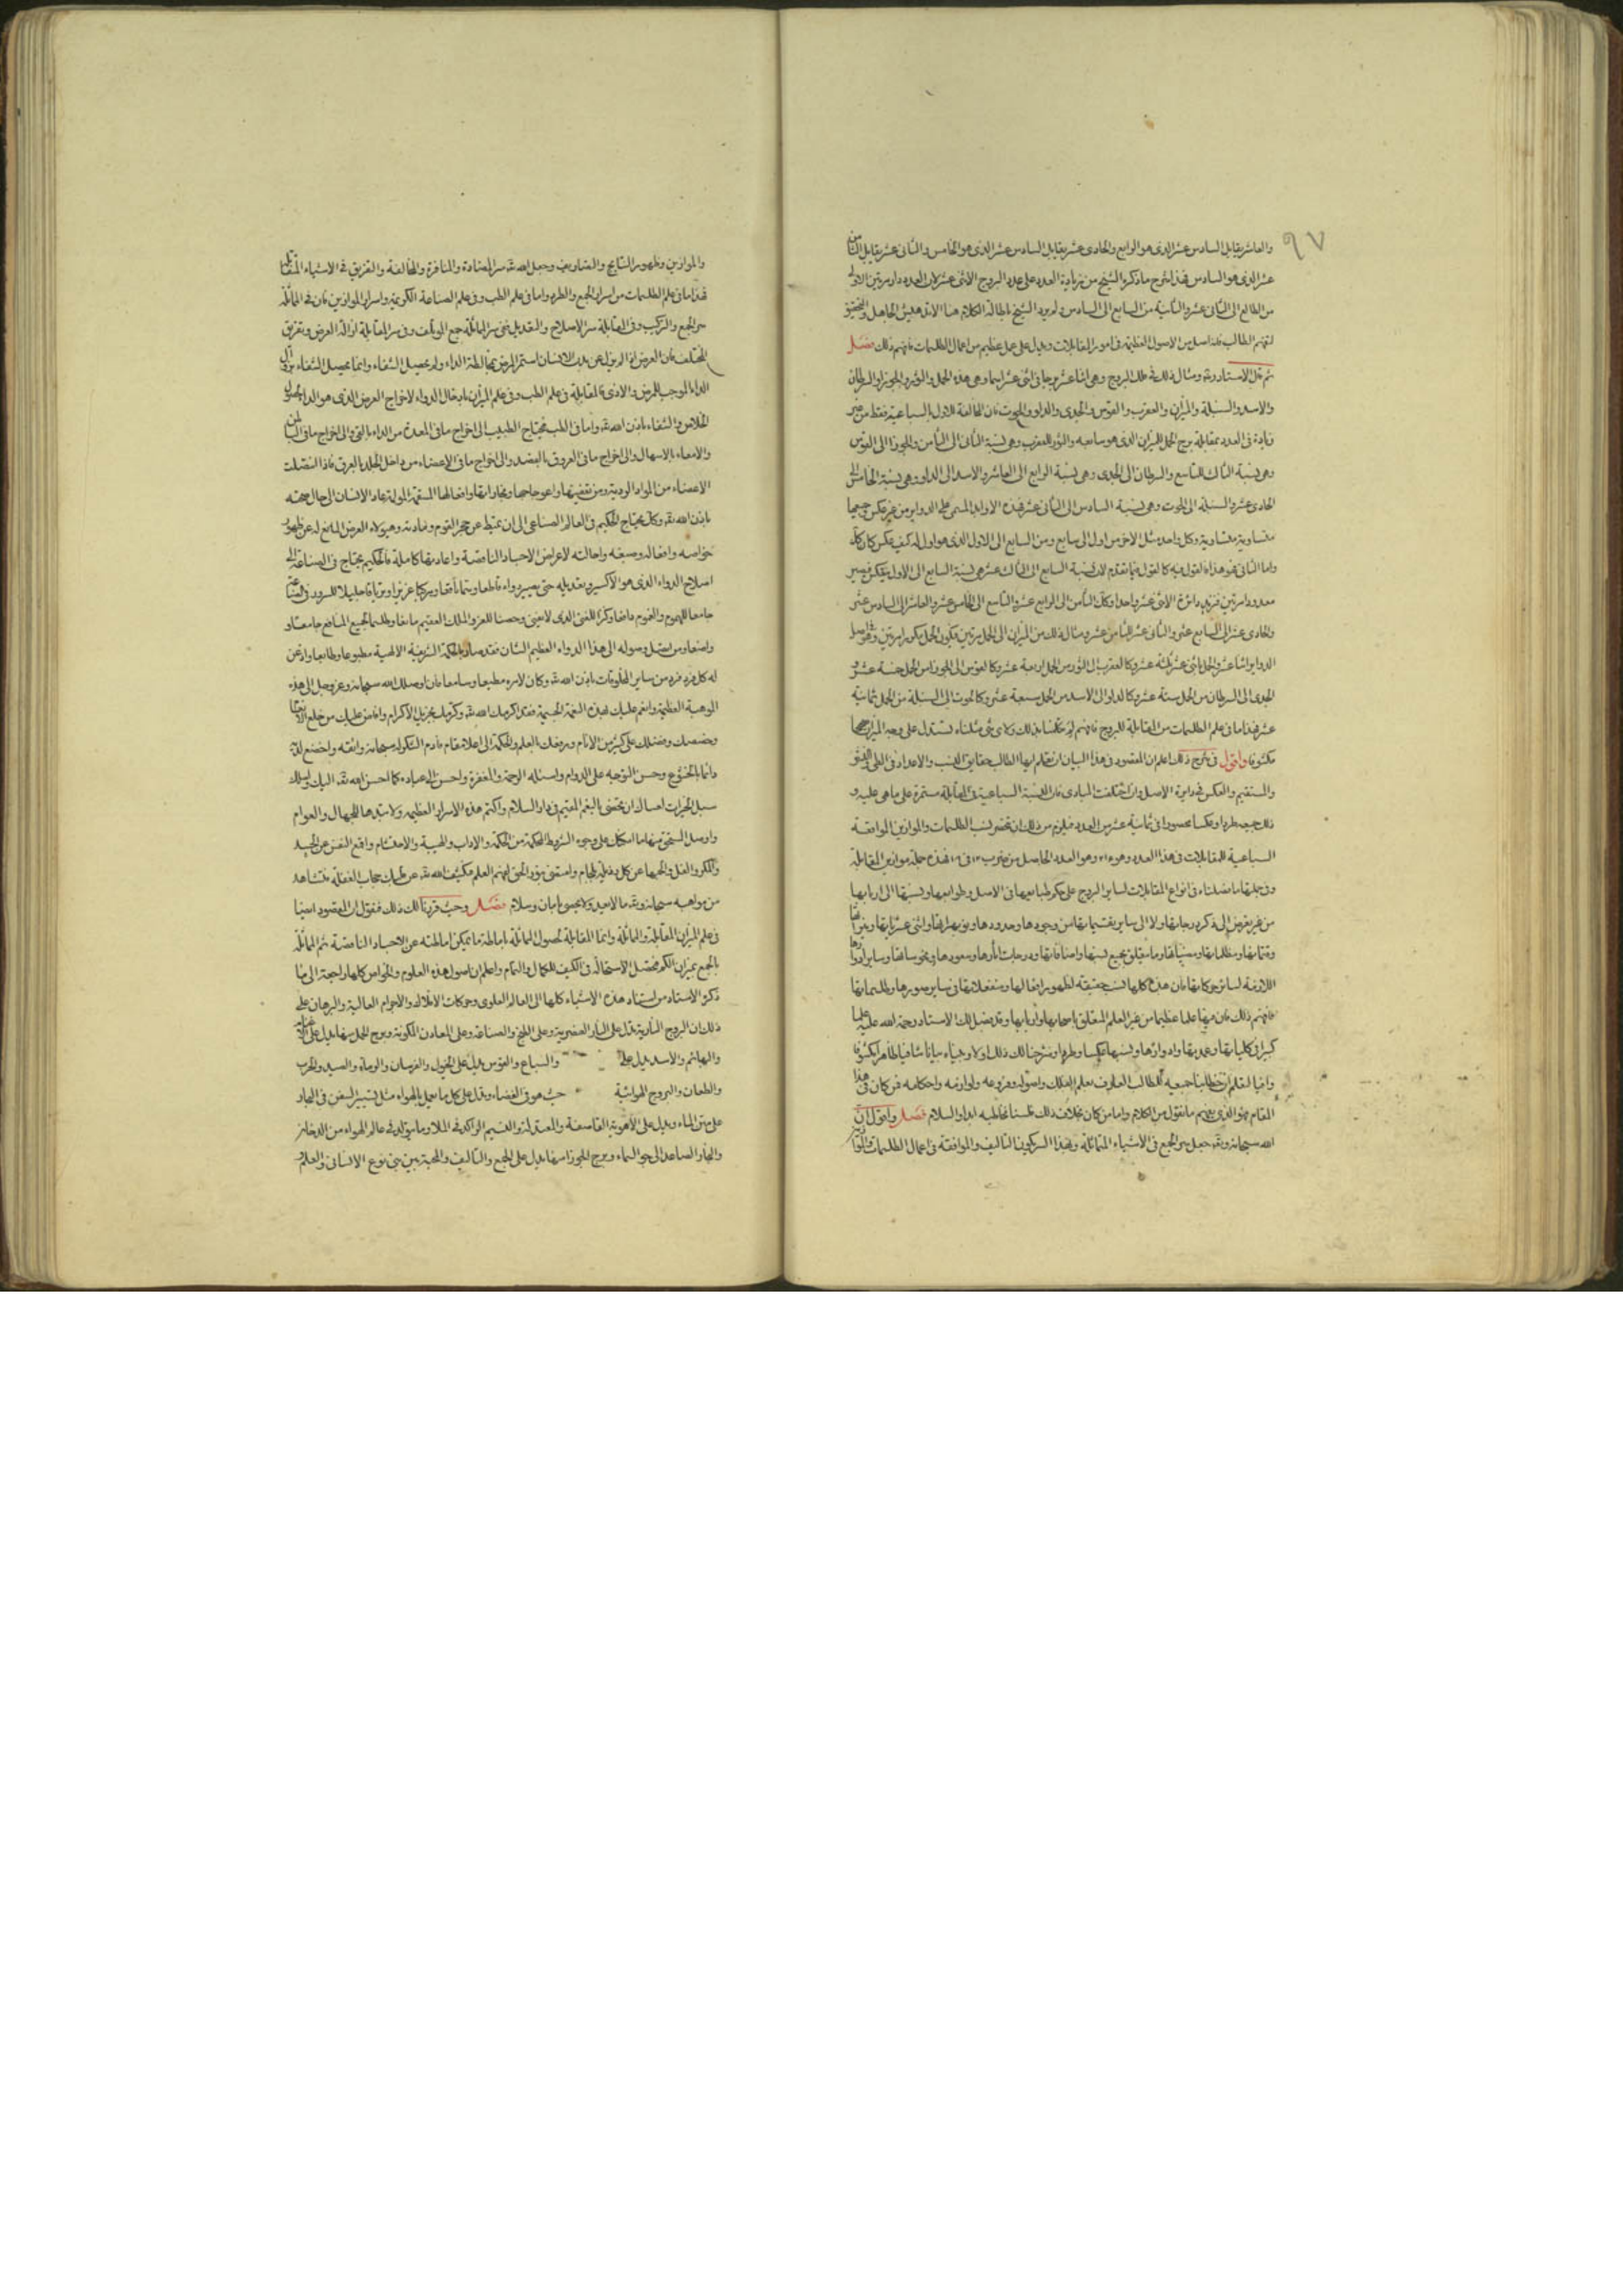 ٩٧
والعاشر يقابل السادس عشر الذى هو الرابع والحادى عشر يقابل السادس عشر الذى هو الخامس والثانى عشر يقابل الثامن
عشر الذى هو السادس فهذا شرح ما ذكره الشيخ من زيادة العدد على عدد البروج الاثنى عشر لان العدد دار مرتين الاولى
من الطالع الى الثانى عشر والثانية من السابع الى السادس ولم يرد الشيخ باطالة الكلام هنا الا تدهيش الجاهل والتحقيق
لتفهم الطالب فهذا اصل من الاصول العظيمة فى امور المقابلات ودليل على عمل عظيم من اعمال الطلسمات فافهم ذلك فصل
ثم قال الاستاد ومثال ذلك فى فلك البروج وهى اثنا عشر برجا فى اثنى عشر اسما وهى هذه الحمل والثور والجوزا والسرطان
والاسد والسنبلة والميزان والعقرب والقوس والجدى والدلو والحوت فان المخالفة للاول السباعية فقط من غير
زيادة فى العدد بمقابلة برج الحمل للميزان الذى هو سابعه والثور للعقرب وهى نسبة الثانى الى الثامن والجوزا الى القوس
وهى نسبة الثالث للتاسع والسرطان الى الجدى وهى نسبة الرابع الى العاشر والاسد الى الدلو وهى نسبة الخامس الى
الحادى عشر والسنبلة الى الحوت وهى نسبة السادس الى الثانى عشر فهذه الاوايل المسمى على الدواير من غير عكس وجميعها
متساوية متساوية وكل واحد مثل الاخر من اول الى سابع ومن السابع الى الاول الذى هو اول له كيف عكس كان كذلك
واما الثانى فهو هذا ه اقول فيه كما اقول فيما تقدم لان نسبة السابع الى الثالث عشر هى نسبة السابع الى الاول بعكس فيصير
معدودا مرتين فنزيد دائرة الاثنى عشر واحدا وكذلك الثامن الى الرابع عشر والتاسع الى الخامس عشر والعاشر الى السادس عشر
والحادى عشر الى السابع عشر والثانى عشر للثامن عشر ومثال ذلك من الميزان الى الحمل مرتين فيكون الحمل مكررا مرتين
الدواير اثنا عشر والحمل باثنى عشر ثلثة عشر وكالعقرب الى الثور من الحمل اربعة عشر وكالقوس الى الجوزا من الحمل خمسة عشر و
الجدى الى السرطان من الحمل ستة عشر وكالدلو الى الاسد من الحمل سبعة عشر وكالحوت الى السنبلة من الحمل ثمانية
عشر فهذا ما فى علم الطلسمات من المقابلة للبروج فافهم
مكشوفا واقول فى شرح ذلك اعلم ان المقصود فى هذا البيان ان تعلم ايها الطالب حقايق النسب والاعداد فى
والمستقيم والعكس فى دايرة الاصل وان اختلفت المبادى فان النسبة السباعية فى المقابلة مستمرة على ما هى عليه و
ذلك جميعه طردا وعكسا محصورا فى ثمانية عشر من العدد فيلزم من ذلك ان تحضر نسب الطلسمات والموازين الموافقة
السباعية للمقابلات فى هذا العدد وهو وهو العدد الحاصل من ضرب فهذه جملة موازين المقابلة
وفى جملتها ما فصلناه فى انواع المقابلات لساير البروج على حكم طبايعها فى الاصل وطوالعها ونسبتها الى اربابها
من غير تعرض الى ذكر درجاتها ولا الى ساير تقسيماتها من وجوهها وحدودها ونوبهراتها واثنى عشرياتها ونيراتها
اللازمة لساير حركاتها فان هذه كلها نسب حقيقية لظهور افعالها ومنفعلاتها فى ساير صورها وطلسماتها
فافهم ذلك فان فيها علما عظيما من غير العلم المتعلق باسمائها وقد فصل لك الاستاد رحمة الله عليه علما
كبيرا فى كلياتها وعددها وادوارها ونسبها عكسا وطردا وشرحنا لك ذلك اولا وبيناه بيانا شافيا ظاهرا مكشوفا
وانما القلم ان خطابنا جميعه للطالب العارف بعلم الفلك واصوله وفروعه ولوازمه واحكامه فمن كان فى هذا
المقام فهو الذى يفهم ما نقول من الكلام واما من كان بخلاف ذلك فلسنا نخاطبه ابدا والسلام فصل واقول ان
الله سبحانه وتعالى جعل سر الجمع فى الاشياء المتماثلة وبهذا السر يكون التاليف والموافقة فى اعمال الطلسمات
والموازين وظهور النتايج والتصاريف وجعل الله تعالى سر المضادة والمنافرة والمخالفة والتفريق فى الاشياء المتقابلة
فهذا ما فى علم الطلسمات من اسرار الجمع والطرد واما فى علم الطب وفى علم الصناعة الكريمة واسرار الموازين فان فى المماثلة
سر الجمع والتركيب وفى المقابلة سر الاصلاح والتعديل ففى سر المماثلة جمع المؤتلف وفى سر المقابلة ازالة العرض وتفريق
المختلف فان العرض اذا لم يزل عن بدن الانسان استمر المرض بمخالطة الداء ولم يحصل الشفاء وانما يحصل الشفاء بزوال
الداء الموجب للمرض والاذى فالمقابلة فى علم الطب وفى علم الميزان بادخال الدواء لاخراج العرض الذى هو الداء
الخلاص والشفاء باذن الله تعالى واما فى الطب فيحتاج الطبيب الى اخراج ما فى المعدة من الداء بالقى والى اخراج ما فى الباطن
والامعاء بالاسهال والى اخراج ما فى العروق بالفصد والى اخراج ما فى الاعضاء من داخل الجلد بالعرق فاذا انفصلت
الاعضاء من المواد الردية ومن تعفينها واعوجاجها ومجاراتها وافعالها السقيمة المولة عاد الانسان الى حال صحته
باذن الله تعالى وكذلك يحتاج الحكيم فى العالم الصناعى الى ان يميط عن حجر القوم ومادته وهيولاه العرض المانع له عن ظهور
خواصه وافعاله وصبغه واحالته لاعراض الاجساد الناقصة واعادتها كاملة فالحكيم يحتاج فى الصناعة الى
اصلاح الدواء الذى هو الاكسير وتعديله حتى يصير دواء قاطعا وسما ناقعا ومركبا عزيزا وترياقا جليلا للسرور
جامعا للهموم والغموم دافعا وكنزا للغنى الذى لا يفنى وحصنا للعز والملك العقيم مانعا وطلسما لجميع المنافع جامعا و
واضعا ومن استهل وصوله الى هذا الدواء العظيم الشان فقد صار بالحكمة الشريفة الالهية مطبوعا وطابعا واذعن
له كل فرد فرد من ساير المخلوقات باذن الله تعالى وكان لامره مطيعا وسامعا فان اوصلك الله سبحانه وعز وجل الى هذه
الموهبة العظيمة وانعم عليك بهذه النعمة الجسيمة فقد اكرمك الله تعالى وكرمك بجزيل الاكرام وافاض عليك من خلع
وخصصك وفضلك على كثير من الانام ورفعك بالعلم والحكمة الى اعلا مقام فادم الشكر له سبحانه واتقه واخضع لله
دائما بالخشوع وحسن التوجه على الدوام واسئله الرحمة والمغفرة واحسن الى عباده كما احسن الله تعالى اليك واسلك
سبل الخيرات لعسالك ان تحضى بالنعيم المقيم فى دار السلام واكتم هذه الاسرار العظيمة ولا تبدها للجهال والعوام
واوصل المستحق منها ما امكنك على وجوه الشروط المحكمة من الحكمة والاداب والهيبة والاحتشام واقمع النفس عن الحسد
والمكر والغل والجمها عن كل رذيلة بلجام واستغن بنور الحق لتفهم العلم فيكشف الله تعالى عن قلبك حجاب الغفلة فتشاهد
من مواهبه سبحانه وتعالى ما لا يعد ولا يحصى بامان وسلام فصل وحيث قررنا لك ذلك فنقول ان المقصود ايضا
فى علم الميزان المقابلة والمماثلة وانما المقابلة لحصول المماثلة باماطة ما يمكن اماطته عن الاجساد الناقصة ثم المماثلة
بالجمع بميزان الكم فتحصل الاستحالة فى الكيف للكمال والتمام واعلم ان اصول هذه العلوم والخواص كلها راجعة الى ما
ذكره الاستاد من استناد هذه الاشياء كلها الى العالم العلوى وحركات الافلاك والاجرام العالية والبرهان على
ذلك ان البروج النارية تدل على النار العنصرية وعلى الفخ والصناعة وعلى المعادن المكونة وبرج الحمل منها يدل على
والبهائم والاسد يدل على والسباع والقوس يدل على الخيول والفرسان والرماة والصيد والحرب
والطعان والبروج الهوائية حيث هو فى الفضاء وتدل على كل ما يعمل بالهواء مثل تسيير السفن فى البحار
على متن الماء ويدل على الاهوية العاصفة والمعتدلة والنسيم الراكد فى الملا وما يتولد فى عالم الهواء من الدخان
والبخار الصاعد الى جو السماء وبرج الجوزا منها يدل على الجمع والتاليف والمحبة بين بنى نوع الانسانى والعلم